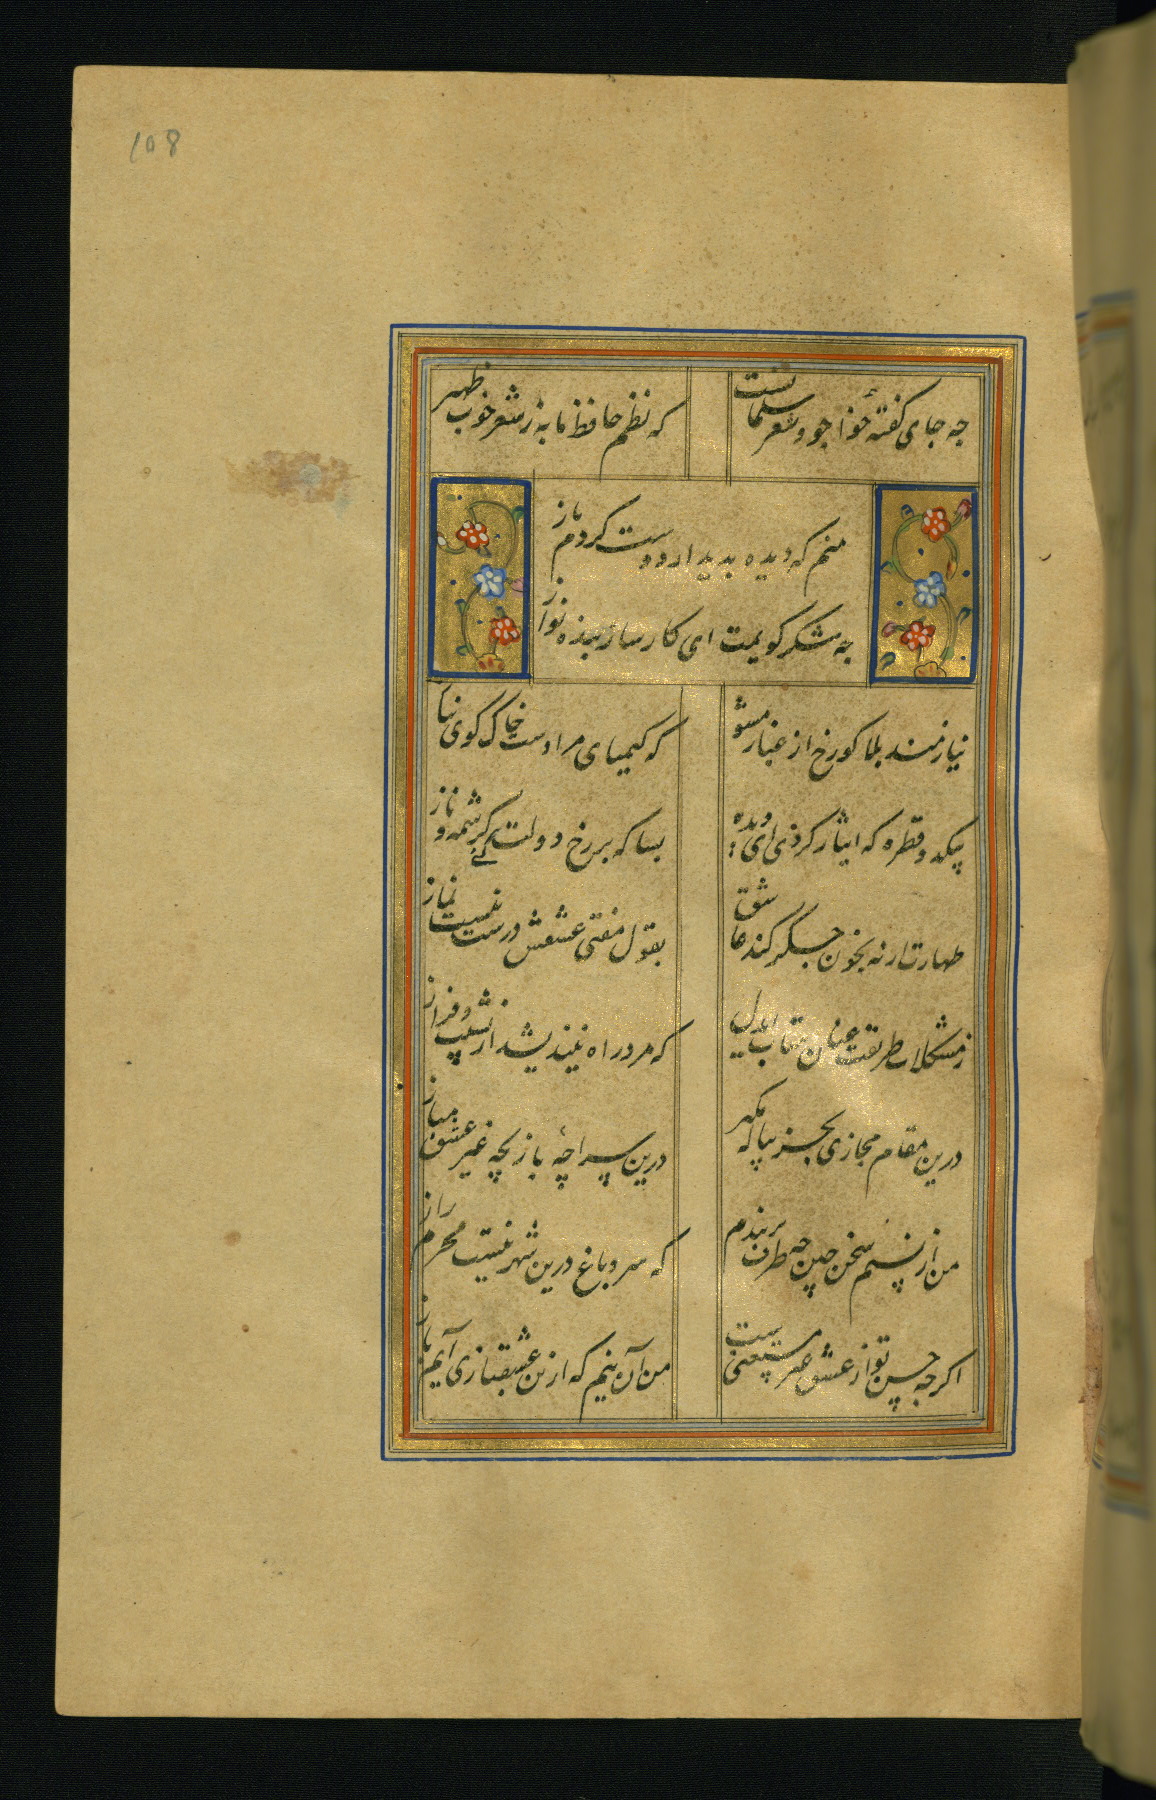 108
چه جای کفتهٔ خواجو و شعر سلمانست
که نظم حافظ ما به ز شعر خوب ظهیر
منم که دیده بدیدار دوست کردم باز
چه شکر کویمت ای کارساز بنده نواز
نیازمند بلا کو رخ از غبار مشو
که کیمیای مرادست خاک کوی نیاز
بیکدو قطره که ایثار کردی ای دیده
بسا که بر رخ دولت کنی کرشمه و ناز
طهارت ار نه بخون جکر کند عاشق
بقول مفتی عشقش درست نیست نماز
ز مشکلات طریقت عنان متاب ای دل
که مرد راه نیندیشد از نشیب و فراز
درین مقام مجازی بجز پیاله مکیر
درین سراچهٔ بازیچه غیر عشق مباز
من از نسیم سخن چین چه طرف بربندم
که سرو باغ درین شهر نیست محرم راز
اکرچه حسن تو از عشق غیر مستغنیست
من آن نیم که ازین عشقبازی آیم باز